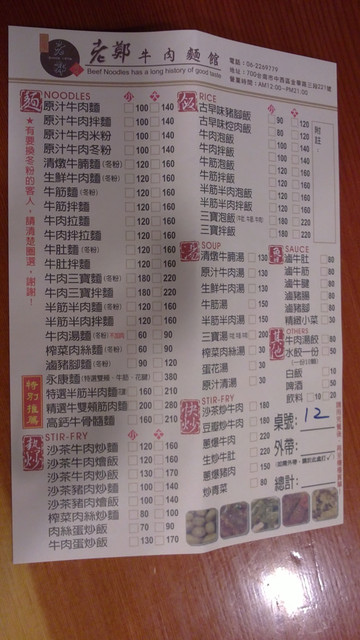 老鄭牛肉麵館
Beef Noodles has a long history of good taste
電話：06-2269779
地址：700台南市中西區金華路三段221號
營業時間：AM12:00~PM21:00
★有要換冬粉的客人，請清楚圈選，謝謝！
麵 NOODLES 小 大
原汁牛肉麵 100 140
原汁牛肉拌麵 100 140
原汁牛肉米粉 100 140
原汁牛肉冬粉 100 140
清燉牛腩麵(冬粉) 120 160
生鮮牛肉麵(冬粉) 120 160
牛筋麵(冬粉) 120 160
牛筋拌麵 120 160
牛肉拉麵 120 160
牛肉拌拉麵 120 160
牛肚麵(冬粉) 120 160
牛肚拌麵 120 160
牛肉三寶麵(冬粉) 180 220
牛肉三寶拌麵 180 220
半筋半肉麵(冬粉) 120 160
半筋半肉拌麵 120 160
牛肉湯麵 60 90
榨菜肉絲麵(冬粉) 60 90
滷豬腳麵(冬粉) 90 120
特別推薦
永康麵(特選雙頰、牛筋、花腱) 380
特選半筋半肉麵 160 210
精選牛雙頰筋肉麵 200 280
高鈣牛骨髓麵 160 210
熱炒 STIR-FRY
沙茶牛肉炒麵 120 160
沙茶牛肉燴飯 120 160
沙茶牛肉炒飯 130 170
沙茶豬肉炒麵 100 140
沙茶豬肉燴飯 100 140
榨菜肉絲炒麵 80 100
肉絲蛋炒飯 70 90
牛肉蛋炒飯 130 170
飯 RICE
古早味豬腳飯 90 120
古早味焢肉飯 80
牛肉泡飯 100 140
牛肉拌飯 100 140
牛筋泡飯 120 160
牛筋拌飯 120 160
半筋半肉泡飯 120 160
半筋半肉拌飯 120 160
三寶泡飯 180 220
三寶拌飯 180 220
湯 SOUP
清燉牛腩湯 130
原汁牛肉湯 130
生鮮牛肉湯 130
牛筋湯 150
半筋半肉湯 150
三寶湯 200
榨菜肉絲湯 30
蛋花湯 30
原汁清湯 30
快炒 STIR-FRY
沙茶炒牛肉 180
豆瓣炒牛肉 180
蔥爆牛肉 220
生炒牛肚 220
蔥爆豬肉 150
炒青菜 80
附註：
SAUCE
滷牛肚 80
滷牛筋 80
滷牛腱 80
滷豬腸 80
滷豬腳 80
精緻小菜 30
其他 OTHERS
牛肉湯餃 80
水餃一份 50
白飯 10
啤酒 50
飲料 10 20
桌號：12
外帶：
總計：